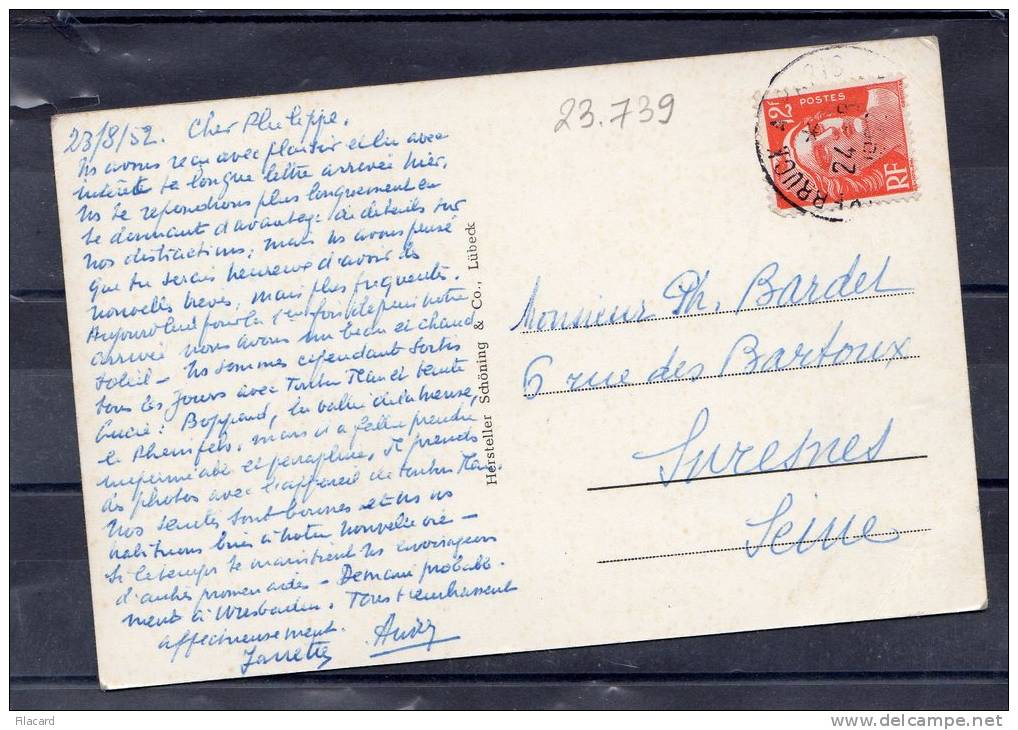 23/8/52. Cher Philippe.
Ns avons reçu avec plaisir et lu avec
intérêt ta longue lettre arrivée hier.
Ns te répondrons plus longuement en
te donnant d'avantage de détails sur
nos distractions, mais ns avons pensé
que tu serais heureux d'avoir des
nouvelles brèves, mais plus fréquentes.
Aujourd'hui pour la 1ère fois depuis notre
arrivée nous avons un beau et chaud
soleil - Ns sommes cependant sortis
tous les jours avec Tonton Jean et tante
Lucie: Boppard, la vallée de la Meuse,
le Rheinfels, mais il a fallu prendre
imperméable et parapluie. Je prends
des photos avec l'appareil de tonton Jean.
Nos santés sont bonnes et ns ns
habituons bien à notre nouvelle vie -
Si le temps se maintient ns envisageons
d'autres promenades - Demain probable-
ment à Wiesbaden. Tous t'embrassent
affectueusement.
23.739
Hersteller Schöning & Co., Lübeck
12F
POSTES
RF
24
Monsieur Ph. Bardet
6 rue des Bartoux
Suresnes
Seine
Filacard
www.delcampe.net